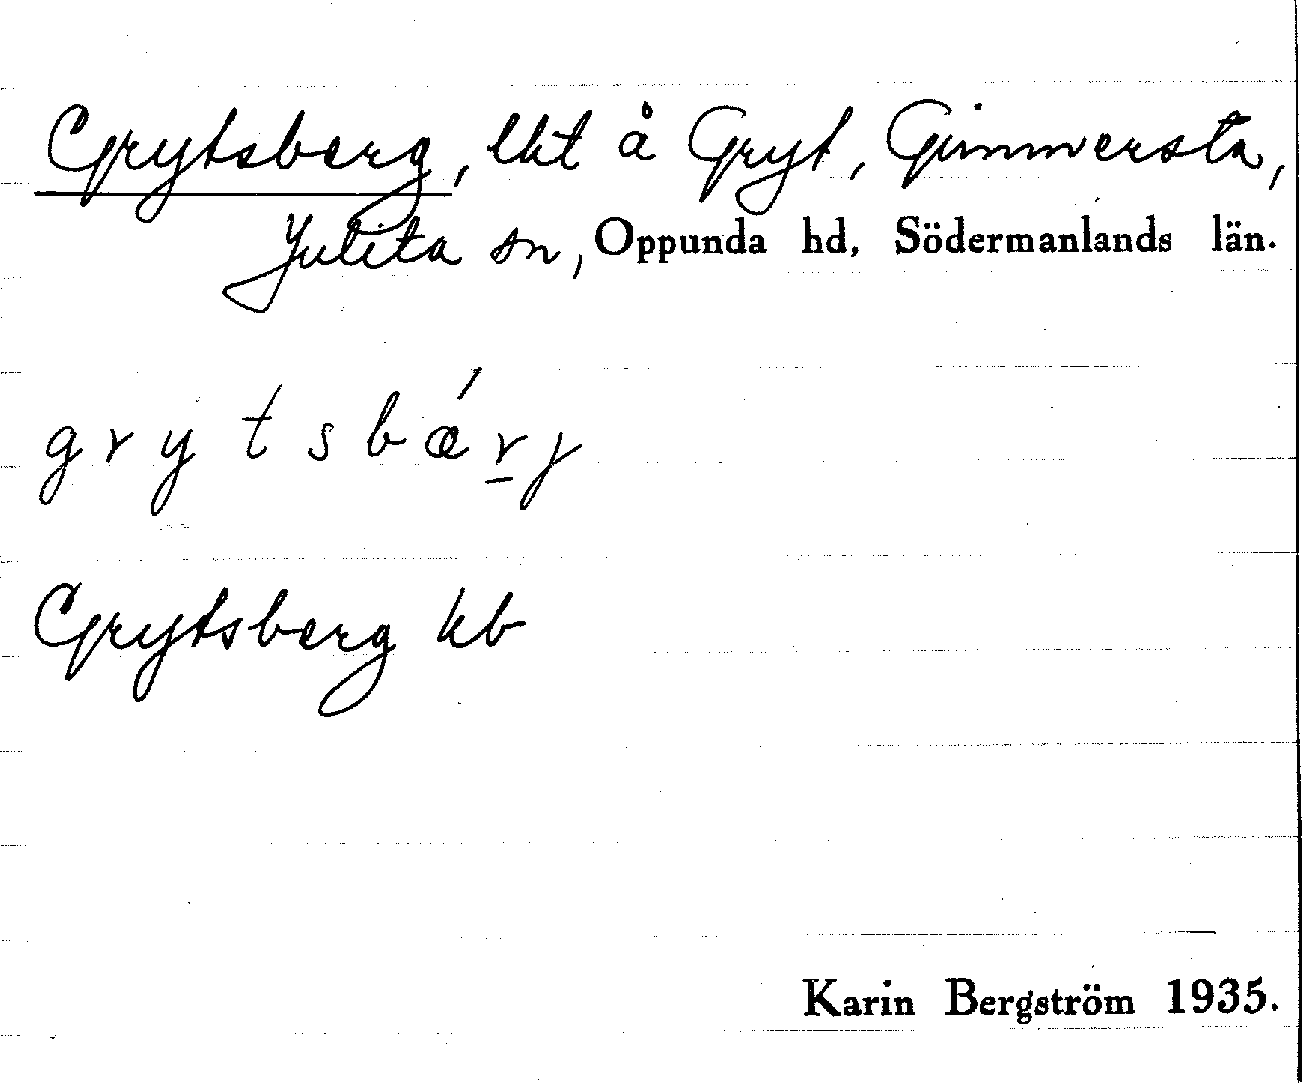 Grytsberg, lht å Gryt, Gimmersta,
Julita sn, Oppunda hd, Södermanlands län.
grytsbǽr̲j
Grytsberg kb
Karin Bergström 1935.